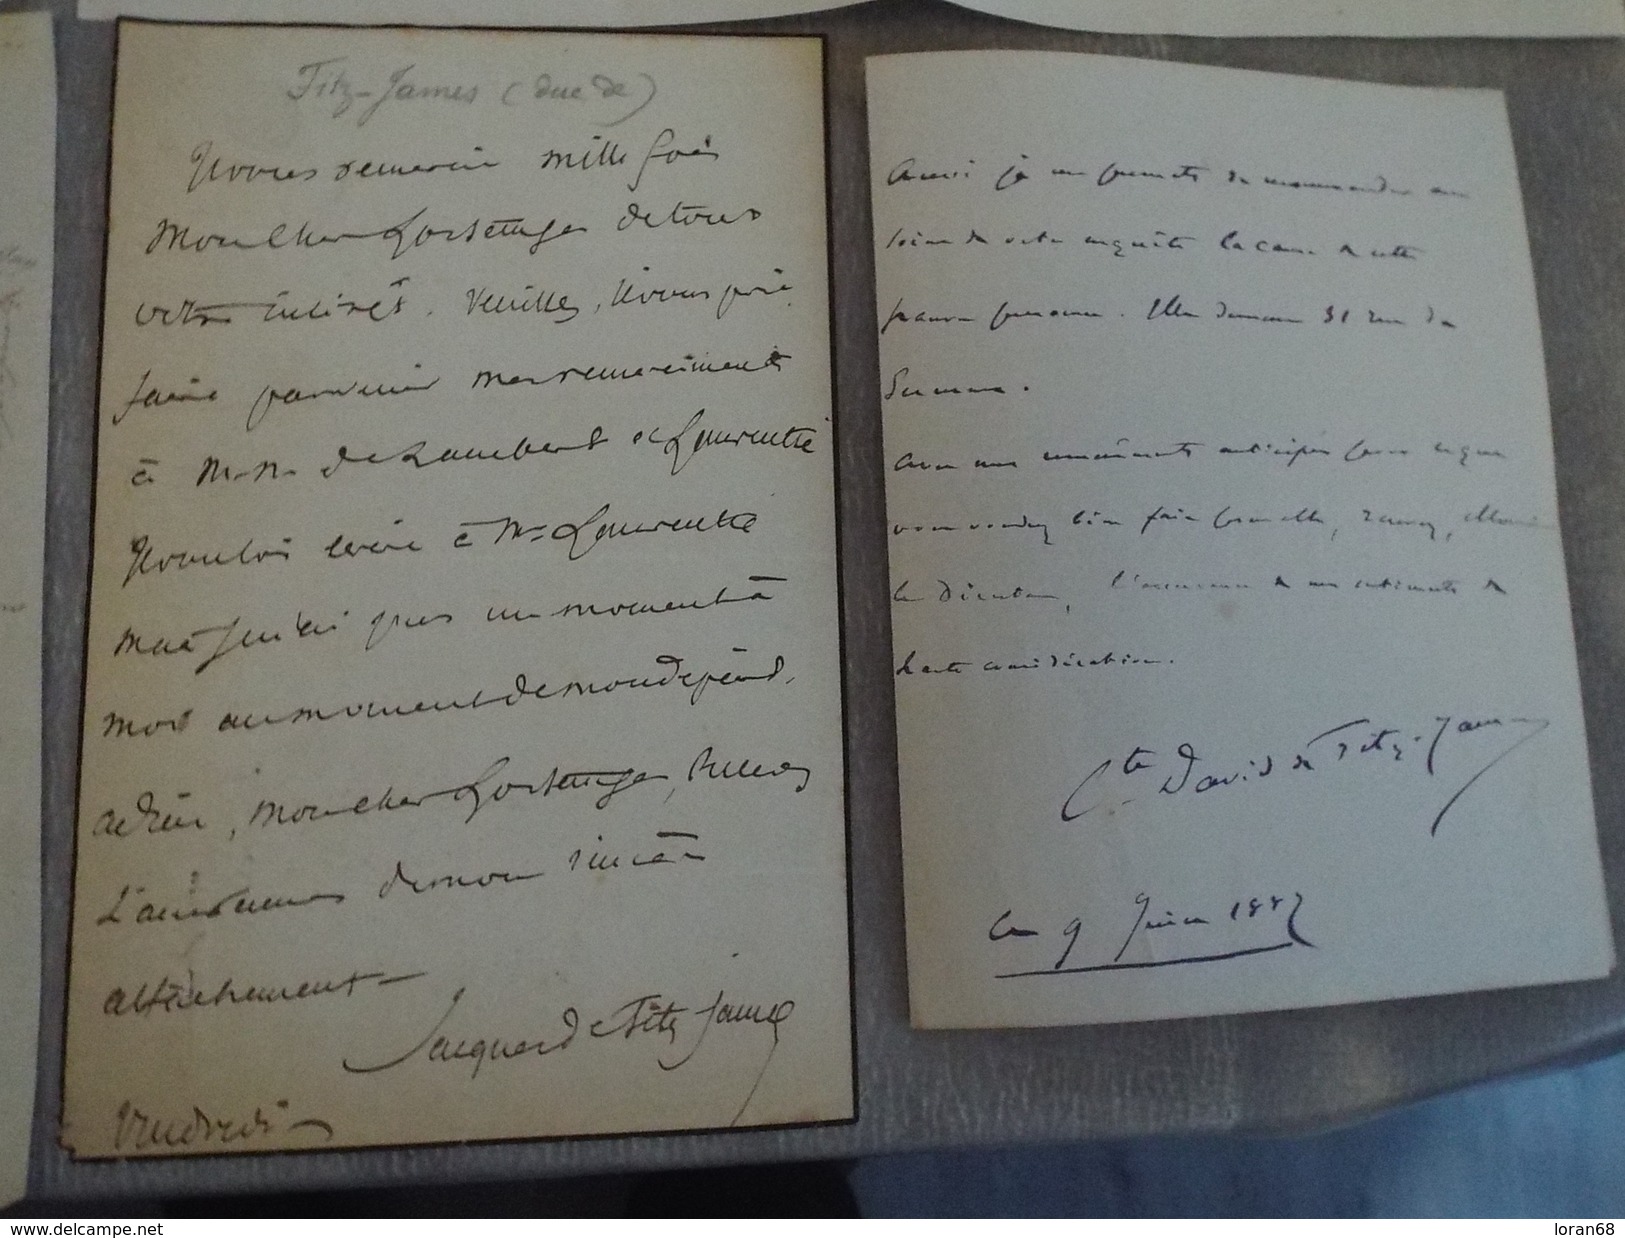 Fitz-James (duc de)
Je vous remercie mille fois
Mon cher de tous
votre intérêt. Veuillez, je vous prie,
faire parvenir mes remerciements
à M.M. de Lambert et Laurentie
Je voulais écrire à Mr Laurentie
mais je n'ai pas un moment à
moi au moment de mon départ.
adieu, Mon cher , Recevez
L'assurance de mon sincère
attachement -
Jacques de Fitz James
Vendredi -
Aussi je me permets de recommander aux
soins de votre enquête la cause de cette
pauvre personne. Elle demeure 31 rue de
avec mes remerciements anticipés pour ce que
vous voudrez bien faire pour elle, recevez, Monsieur
le Directeur, l'assurance de mes sentiments de
haute considération.
Cte David de Fitz-James
ce 9 Juin 1882
www.delcampe.net
loran68